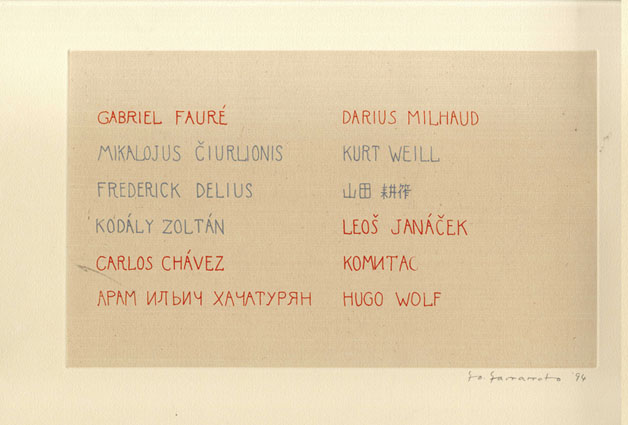 GABRIEL FAURÉ
MIKALOJUS ČIURLIONIS
FREDERICK DELIUS
KODÁLY ZOLTÁN
CARLOS CHÁVEZ
АРАМ ИЛЬИЧ ХАЧАТУРЯН
DARIUS MILHAUD
KURT WEILL
山田 耕筰
LEOŠ JANÁČEK
КОМИТАС
HUGO WOLF
'94